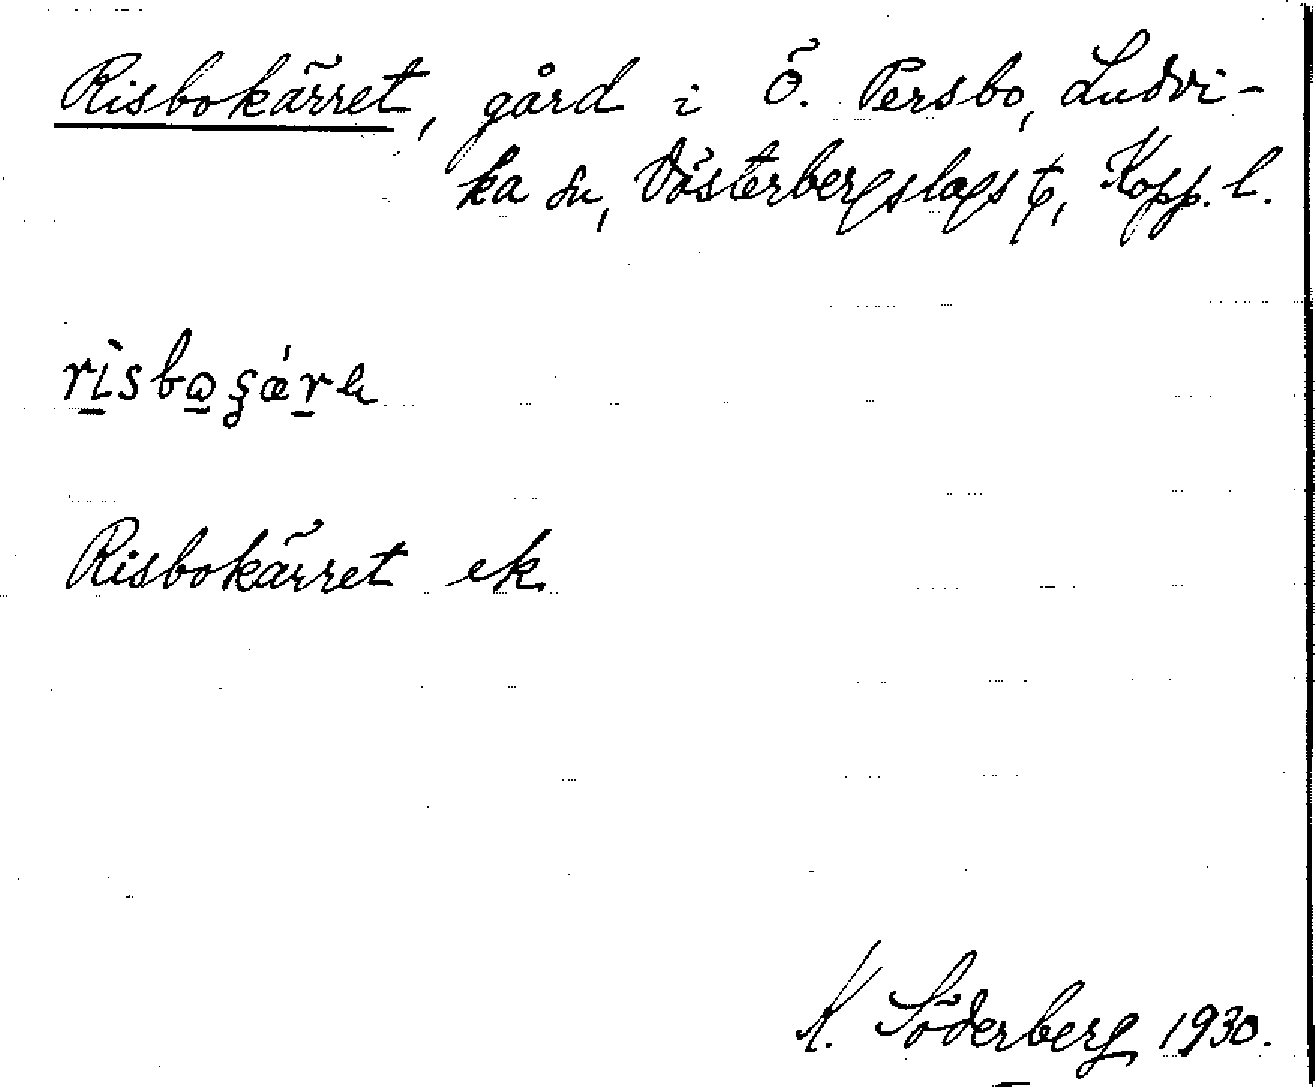 Risbokärret, gård i Ö. Persbo, Ludvi-
ka sn, Västerbergslags t, Kopp. l.
Risbokärret ek.
K. Söderberg 1930.